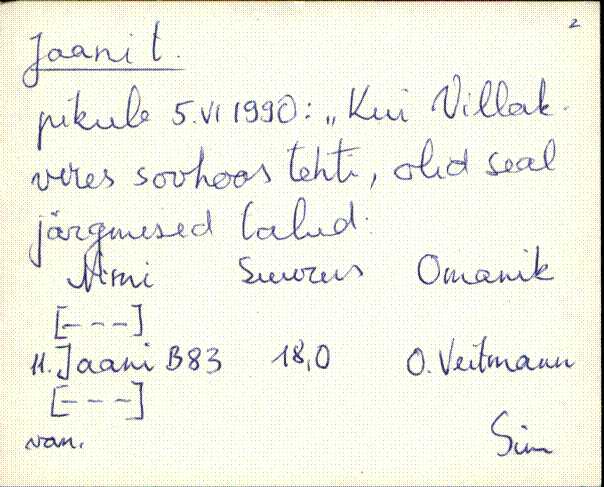 2
Jaani t.
pikule 5.VI 1990: „Kui Villak-
veres sovhoos tehti, olid seal
järgmised talud:
Nimi Suurus Omanik
[---]
11. Jaani B83 18,0 O. Veitmann
[---]
van. Sim